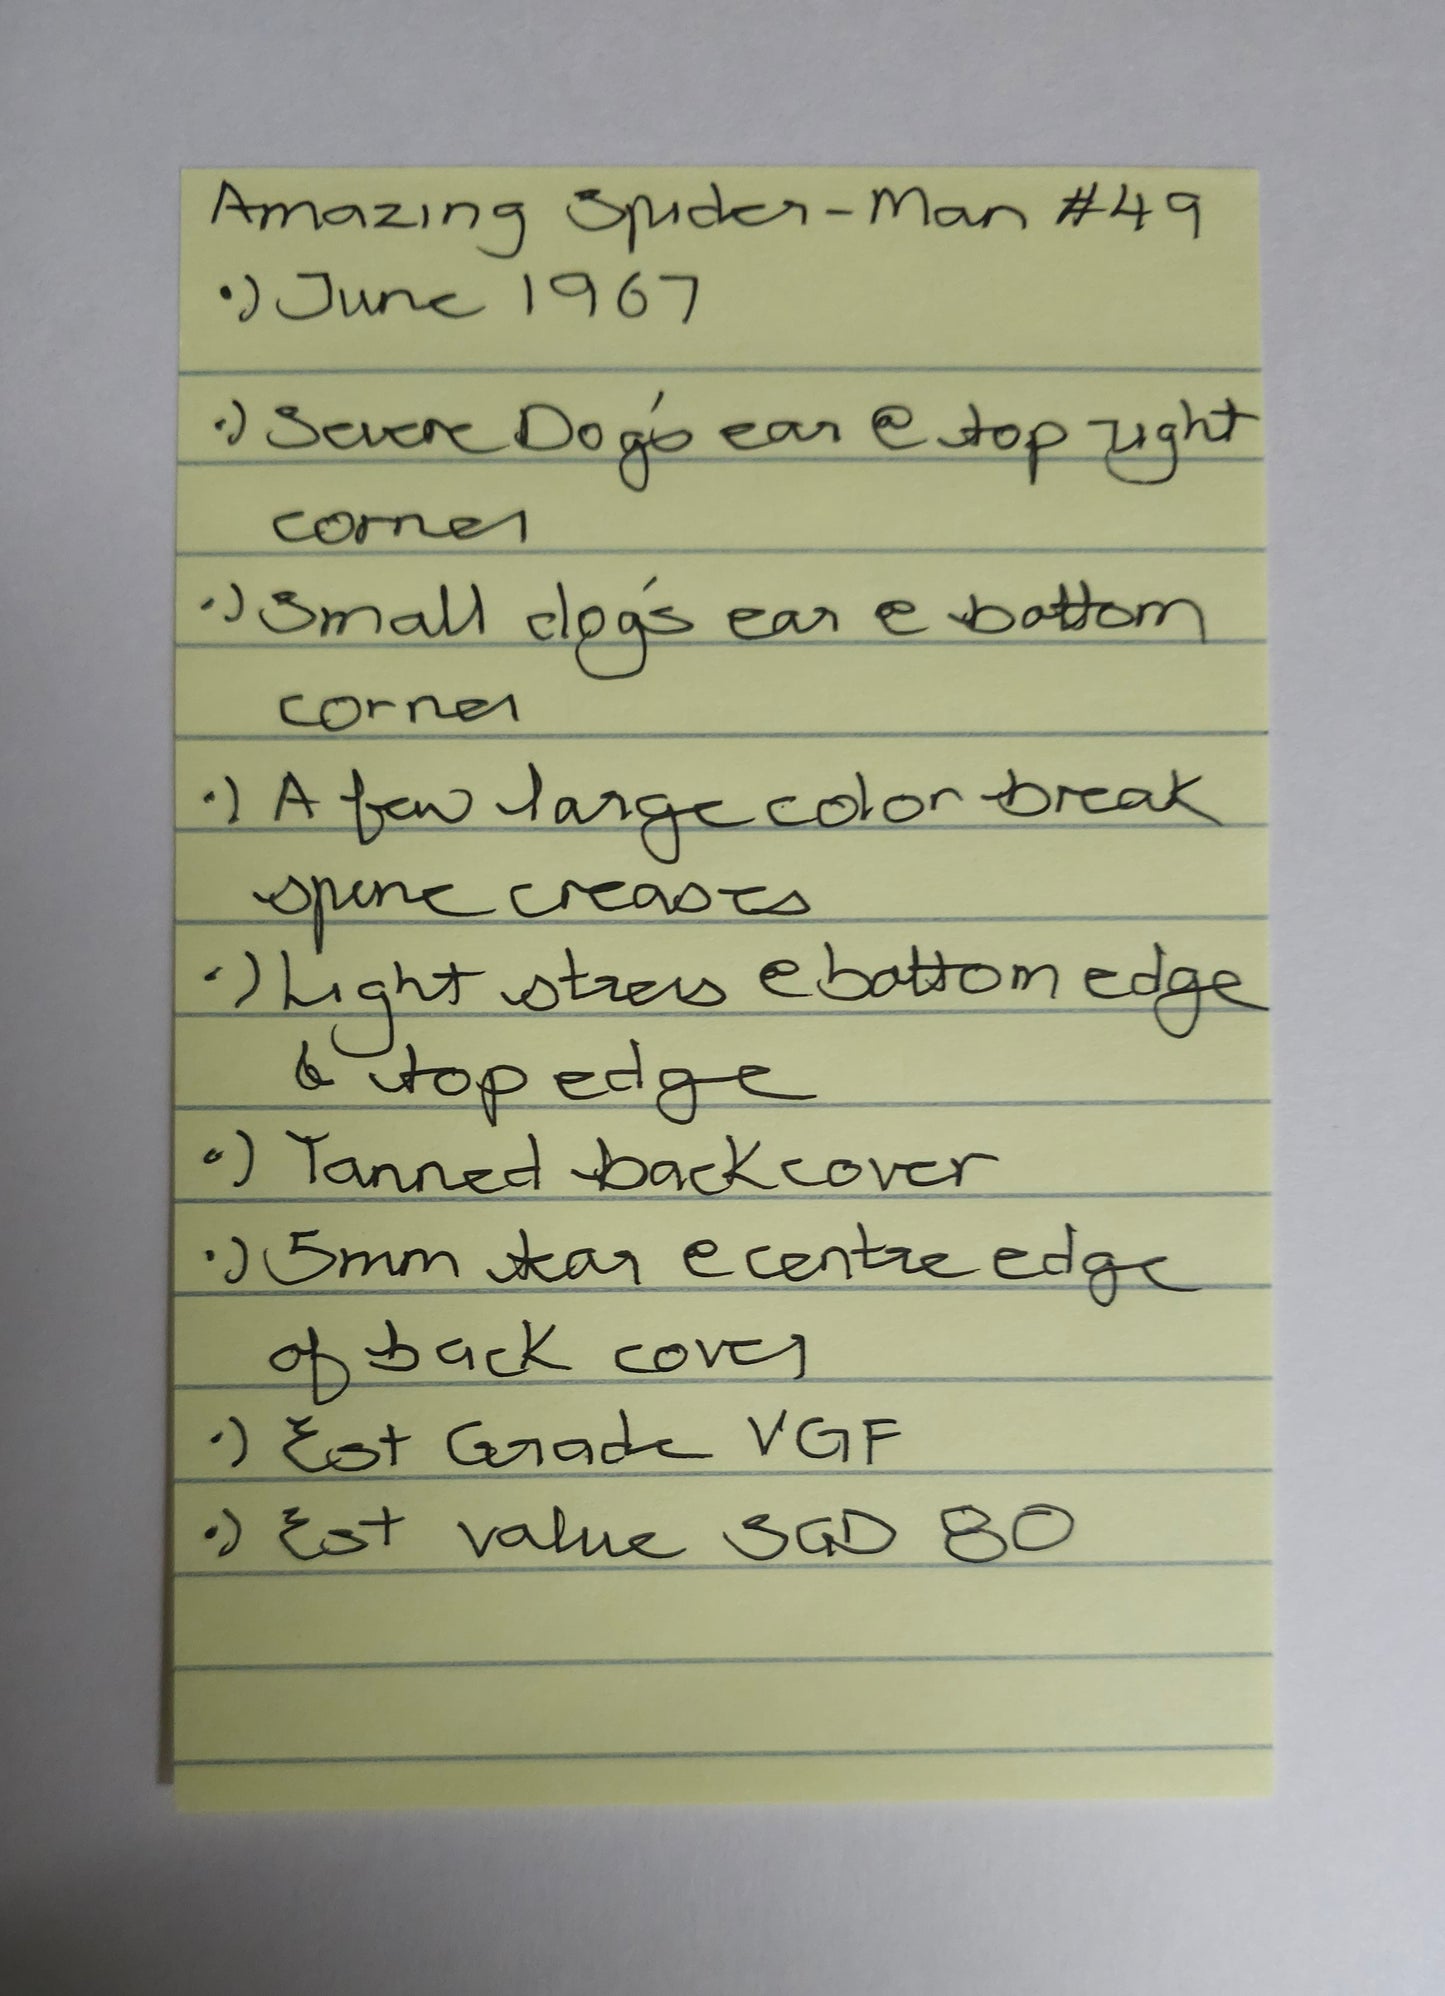 Amazing Spider-Man #49
•) June 1967
•) Severe Dog's ear @ top right
corner
•) Small dog's ear @ bottom
corner
•) A few large color break
spine creases
•) Light stress @ bottom edge
& top edge
•) Tanned back cover
•) 5mm tear @ centre edge
of back cover
•) Est Grade VGF
•) Est value SGD 80